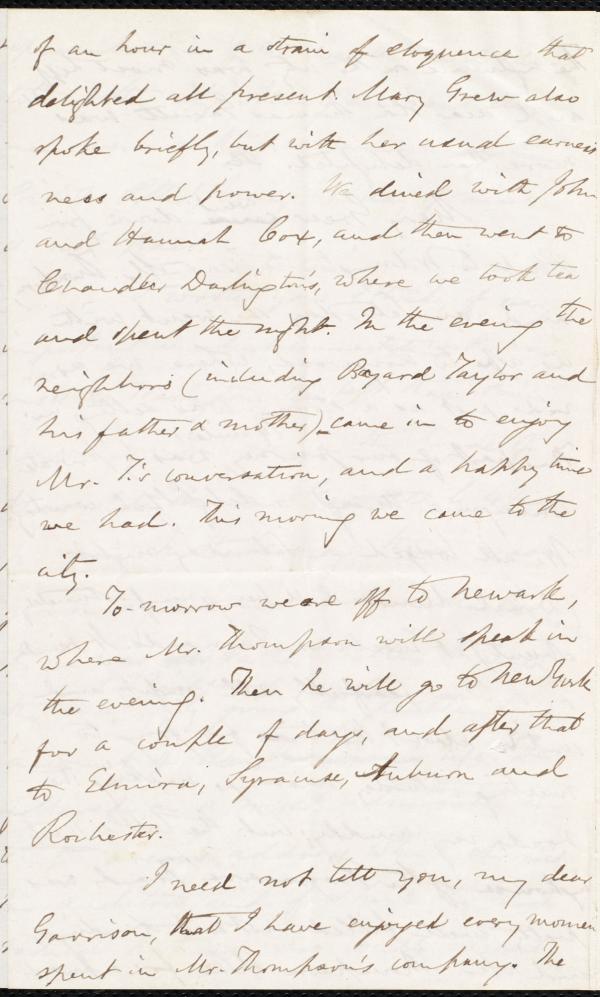 of an hour in a strain of eloquence that
delighted all present. Mary Grew also
spoke briefly, but with her usual earnest-
ness and power. We dined with John
and Hannah Cox, and then went to
Chandler Darlington's, where we took tea
and spent the night. In the evening the
neighbors (including Bayard Taylor and
his father & mother) came in to enjoy
Mr. T.'s conversation, and a happy time
we had. This morning we came to the
city.
To-morrow we are off to Newark,
where Mr. Thompson will speak in
the evening. Then he will go to New York
for a couple of days, and after that
to Elmira, Syracuse, Auburn and
Rochester.
I need not tell you, my dear
Garrison, that I have enjoyed every momen
spent in Mr. Thompson's company. The